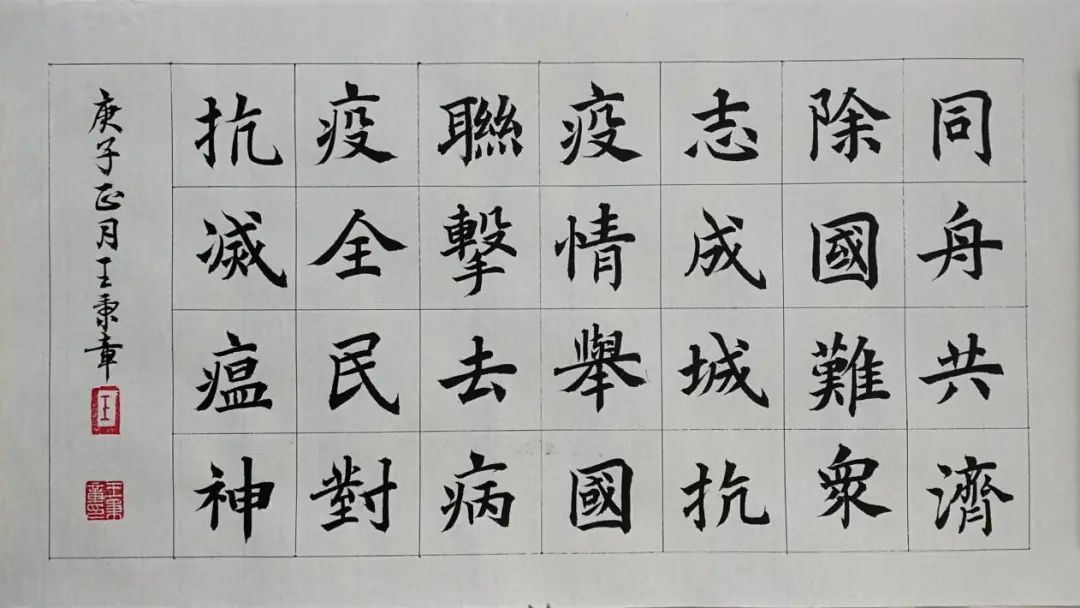 同舟共濟
除國難衆
志成城抗
疫情舉國
聯擊去病
疫全民對
抗滅瘟神
庚子正月王秉章
王
王秉章印